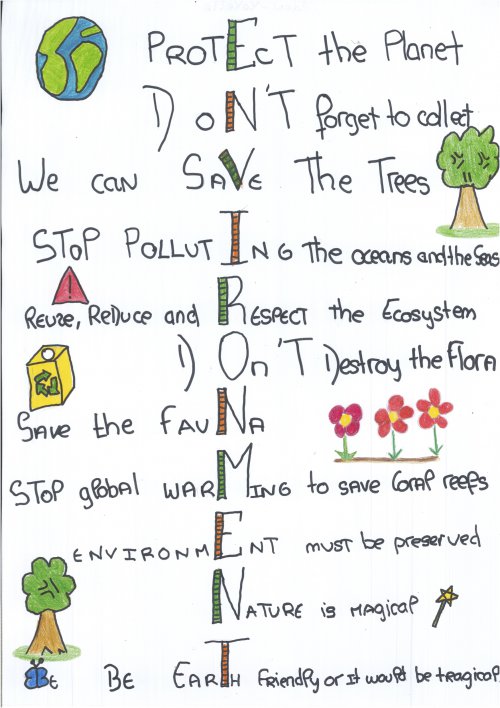 PROTECT the Planet
DON'T forget to collect
We can SAVE The Trees
STOP POLLUTING the oceans and the Seas
REUZE, REDUCE and RESPECT the Ecosystem
DOn'T Destroy the Flora
SAVE the FAUNA
STOP global WARMING to SAVE Coral reefs
ENVIRONMENT must be preserved
NATURE is MAgical
BE BE EARTH Friendly or It would be tragical